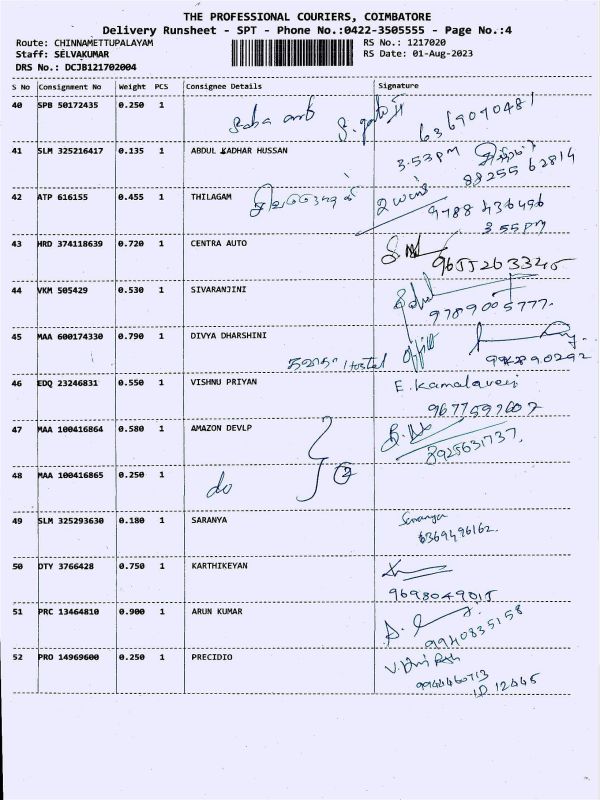 THE PROFESSIONAL COURIERS, COIMBATORE
Delivery Runsheet - SPT - Phone No.:0422-3505555 - Page No.:4
Route: CHINNAMETTUPALAYAM RS No.: 1217020
Staff: SELVAKUMAR RS Date: 01-Aug-2023
DRS No.: DCJB121702004
S No Consignment No Weight PCS Consignee Details Signature
40 SPB 50172435 0.250 1 6369070481
41 SLM 325216417 0.135 1 ABDUL KADHAR HUSSAN 3.53pm
88255 62814
42 ATP 616155 0.455 1 THILAGAM
9788 436496
3 55pm
43 HRD 374118639 0.720 1 CENTRA AUTO
9655263345
44 VKM 505429 0.530 1 SIVARANJINI
9789005777.
45 MAA 600174330 0.790 1 DIVYA DHARSHINI
Hostel office
46 EDQ 23246831 0.550 1 VISHNU PRIYAN E. Kamalaveni
9677597607
47 MAA 100416864 0.580 1 AMAZON DEVLP
8925631737.
48 MAA 100416865 0.250 1 do 2
49 SLM 325293630 0.180 1 SARANYA Saranya
6369496162.
50 DTY 3766428 0.750 1 KARTHIKEYAN
9698049015
51 PRC 13464810 0.900 1 ARUN KUMAR
9940835158
52 PRO 14969600 0.250 1 PRECIDIO
9944460713
ID 12445